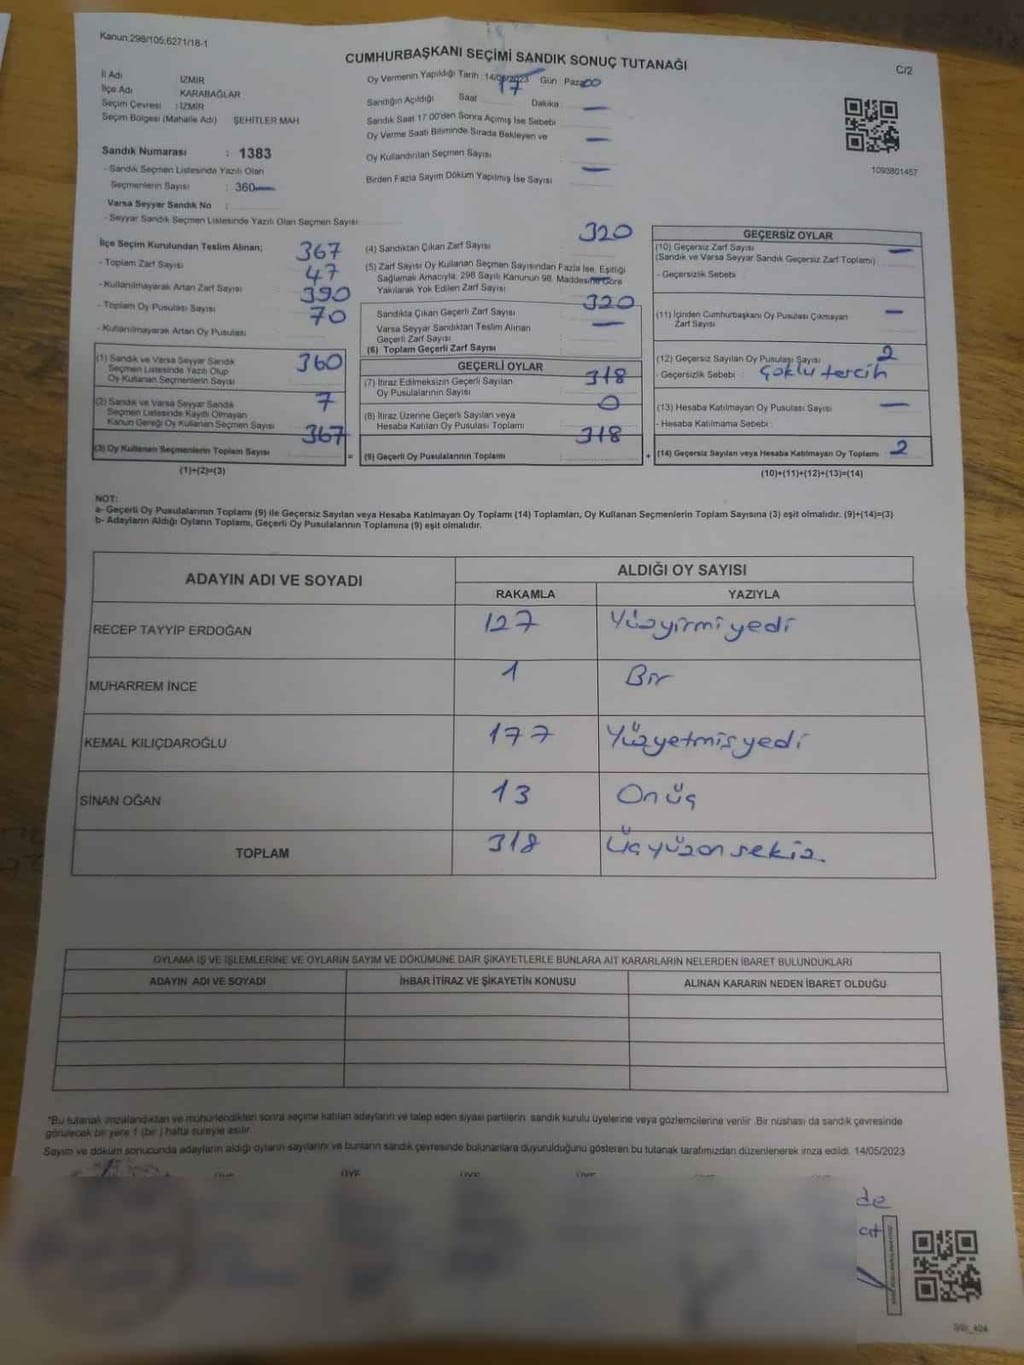 Kanun:298/105;6271/18-1
CUMHURBAŞKANI SEÇİMİ SANDIK SONUÇ TUTANAĞI
C/2
İl Adı İZMİR
İlçe Adı KARABAĞLAR
Seçim Çevresi : İZMİR
Seçim Bölgesi (Mahalle Adı) ŞEHİTLER MAH
Sandık Numarası : 1383
- Sandık Seçmen Listesinde Yazılı Olan
Seçmenlerin Sayısı : 360
Varsa Seyyar Sandık No :
- Seyyar Sandık Seçmen Listesinde Yazılı Olan Seçmen Sayısı
Oy Vermenin Yapıldığı Tarih : 14/05/2023 Gün Pazar
Sandığın Açıldığı Saat 17 Dakika 00
Sandık Saat 17:00'den Sonra Açılmış İse Sebebi —
Oy Verme Saati Bitiminde Sırada Bekleyen ve
Oy Kullandırılan Seçmen Sayısı —
Birden Fazla Sayım Döküm Yapılmış İse Sayısı —
1093801457
İlçe Seçim Kurulundan Teslim Alınan;
- Toplam Zarf Sayısı 367
- Kullanılmayarak Artan Zarf Sayısı 47
- Toplam Oy Pusulası Sayısı 390
- Kullanılmayarak Artan Oy Pusulası 70
(1) Sandık ve Varsa Seyyar Sandık
Seçmen Listesinde Yazılı Olup
Oy Kullanan Seçmenlerin Sayısı 360
(2) Sandık ve Varsa Seyyar Sandık
Seçmen Listesinde Kaydı Olmayan
Kanun Gereği Oy Kullanan Seçmen Sayısı 7
(3) Oy Kullanan Seçmenlerin Toplam Sayısı 367
(1)+(2)=(3)
(4) Sandıktan Çıkan Zarf Sayısı 320
(5) Zarf Sayısı Oy Kullanan Seçmen Sayısından Fazla İse, Eşitliği
Sağlamak Amacıyla, 298 Sayılı Kanunun 98. Maddesine Göre
Yakılarak Yok Edilen Zarf Sayısı —
Sandıkta Çıkan Geçerli Zarf Sayısı 320
Varsa Seyyar Sandıktan Teslim Alınan
Geçerli Zarf Sayısı —
(6) Toplam Geçerli Zarf Sayısı
GEÇERLİ OYLAR
(7) İtiraz Edilmeksizin Geçerli Sayılan
Oy Pusulalarının Sayısı 318
(8) İtiraz Üzerine Geçerli Sayılan veya
Hesaba Katılan Oy Pusulası Toplamı 0
= (9) Geçerli Oy Pusulalarının Toplamı 318
GEÇERSİZ OYLAR
(10) Geçersiz Zarf Sayısı —
(Sandık ve Varsa Seyyar Sandık Geçersiz Zarf Toplamı)
- Geçersizlik Sebebi
(11) İçinden Cumhurbaşkanı Oy Pusulası Çıkmayan
Zarf Sayısı —
(12) Geçersiz Sayılan Oy Pusulası Sayısı 2
- Geçersizlik Sebebi : Çoklu tercih
(13) Hesaba Katılmayan Oy Pusulası Sayısı —
- Hesaba Katılmama Sebebi :
+ (14) Geçersiz Sayılan veya Hesaba Katılmayan Oy Toplamı 2
(10)+(11)+(12)+(13)=(14)
NOT:
a- Geçerli Oy Pusulalarının Toplamı (9) ile Geçersiz Sayılan veya Hesaba Katılmayan Oy Toplamı (14) Toplamları, Oy Kullanan Seçmenlerin Toplam Sayısına (3) eşit olmalıdır. (9)+(14)=(3)
b- Adayların Aldığı Oyların Toplamı, Geçerli Oy Pusulalarının Toplamına (9) eşit olmalıdır.
ADAYIN ADI VE SOYADI ALDIĞI OY SAYISI
RAKAMLA YAZIYLA
RECEP TAYYİP ERDOĞAN 127 Yüzyirmiyedi
MUHARREM İNCE 1 Bir
KEMAL KILIÇDAROĞLU 177 Yüzyetmişyedi
SİNAN OĞAN 13 Onüç
TOPLAM 318 Üçyüzonsekiz.
OYLAMA İŞ VE İŞLEMLERİNE VE OYLARIN SAYIM VE DÖKÜMÜNE DAİR ŞİKAYETLERLE BUNLARA AİT KARARLARIN NELERDEN İBARET BULUNDUKLARI
ADAYIN ADI VE SOYADI İHBAR İTİRAZ VE ŞİKAYETİN KONUSU ALINAN KARARIN NEDEN İBARET OLDUĞU
*Bu tutanak imzalandıktan ve mühürlendikten sonra seçime katılan adayların ve talep eden siyasi partilerin, sandık kurulu üyelerine veya gözlemcilerine verilir. Bir nüshası da sandık çevresinde
görülecek bir yere 1 (bir ) hafta süreyle asılır.
Sayım ve döküm sonucunda adayların aldığı oyların sayılarını ve bunların sandık çevresinde bulunanlara duyurulduğunu gösteren bu tutanak tarafımızdan düzenlenerek imza edildi. 14/05/2023
ÜYE ÜYE ÜYE ÜYE
de